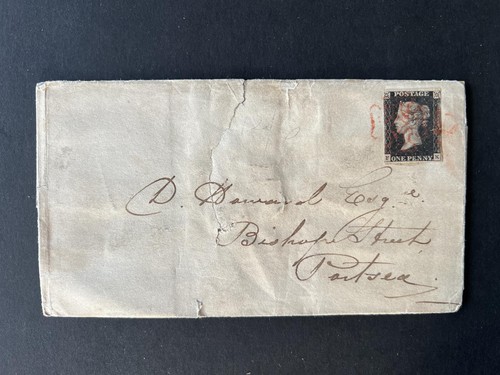 POSTAGE
ONE PENNY
D. Howard Esqre.
Bishop Street
Portsea.